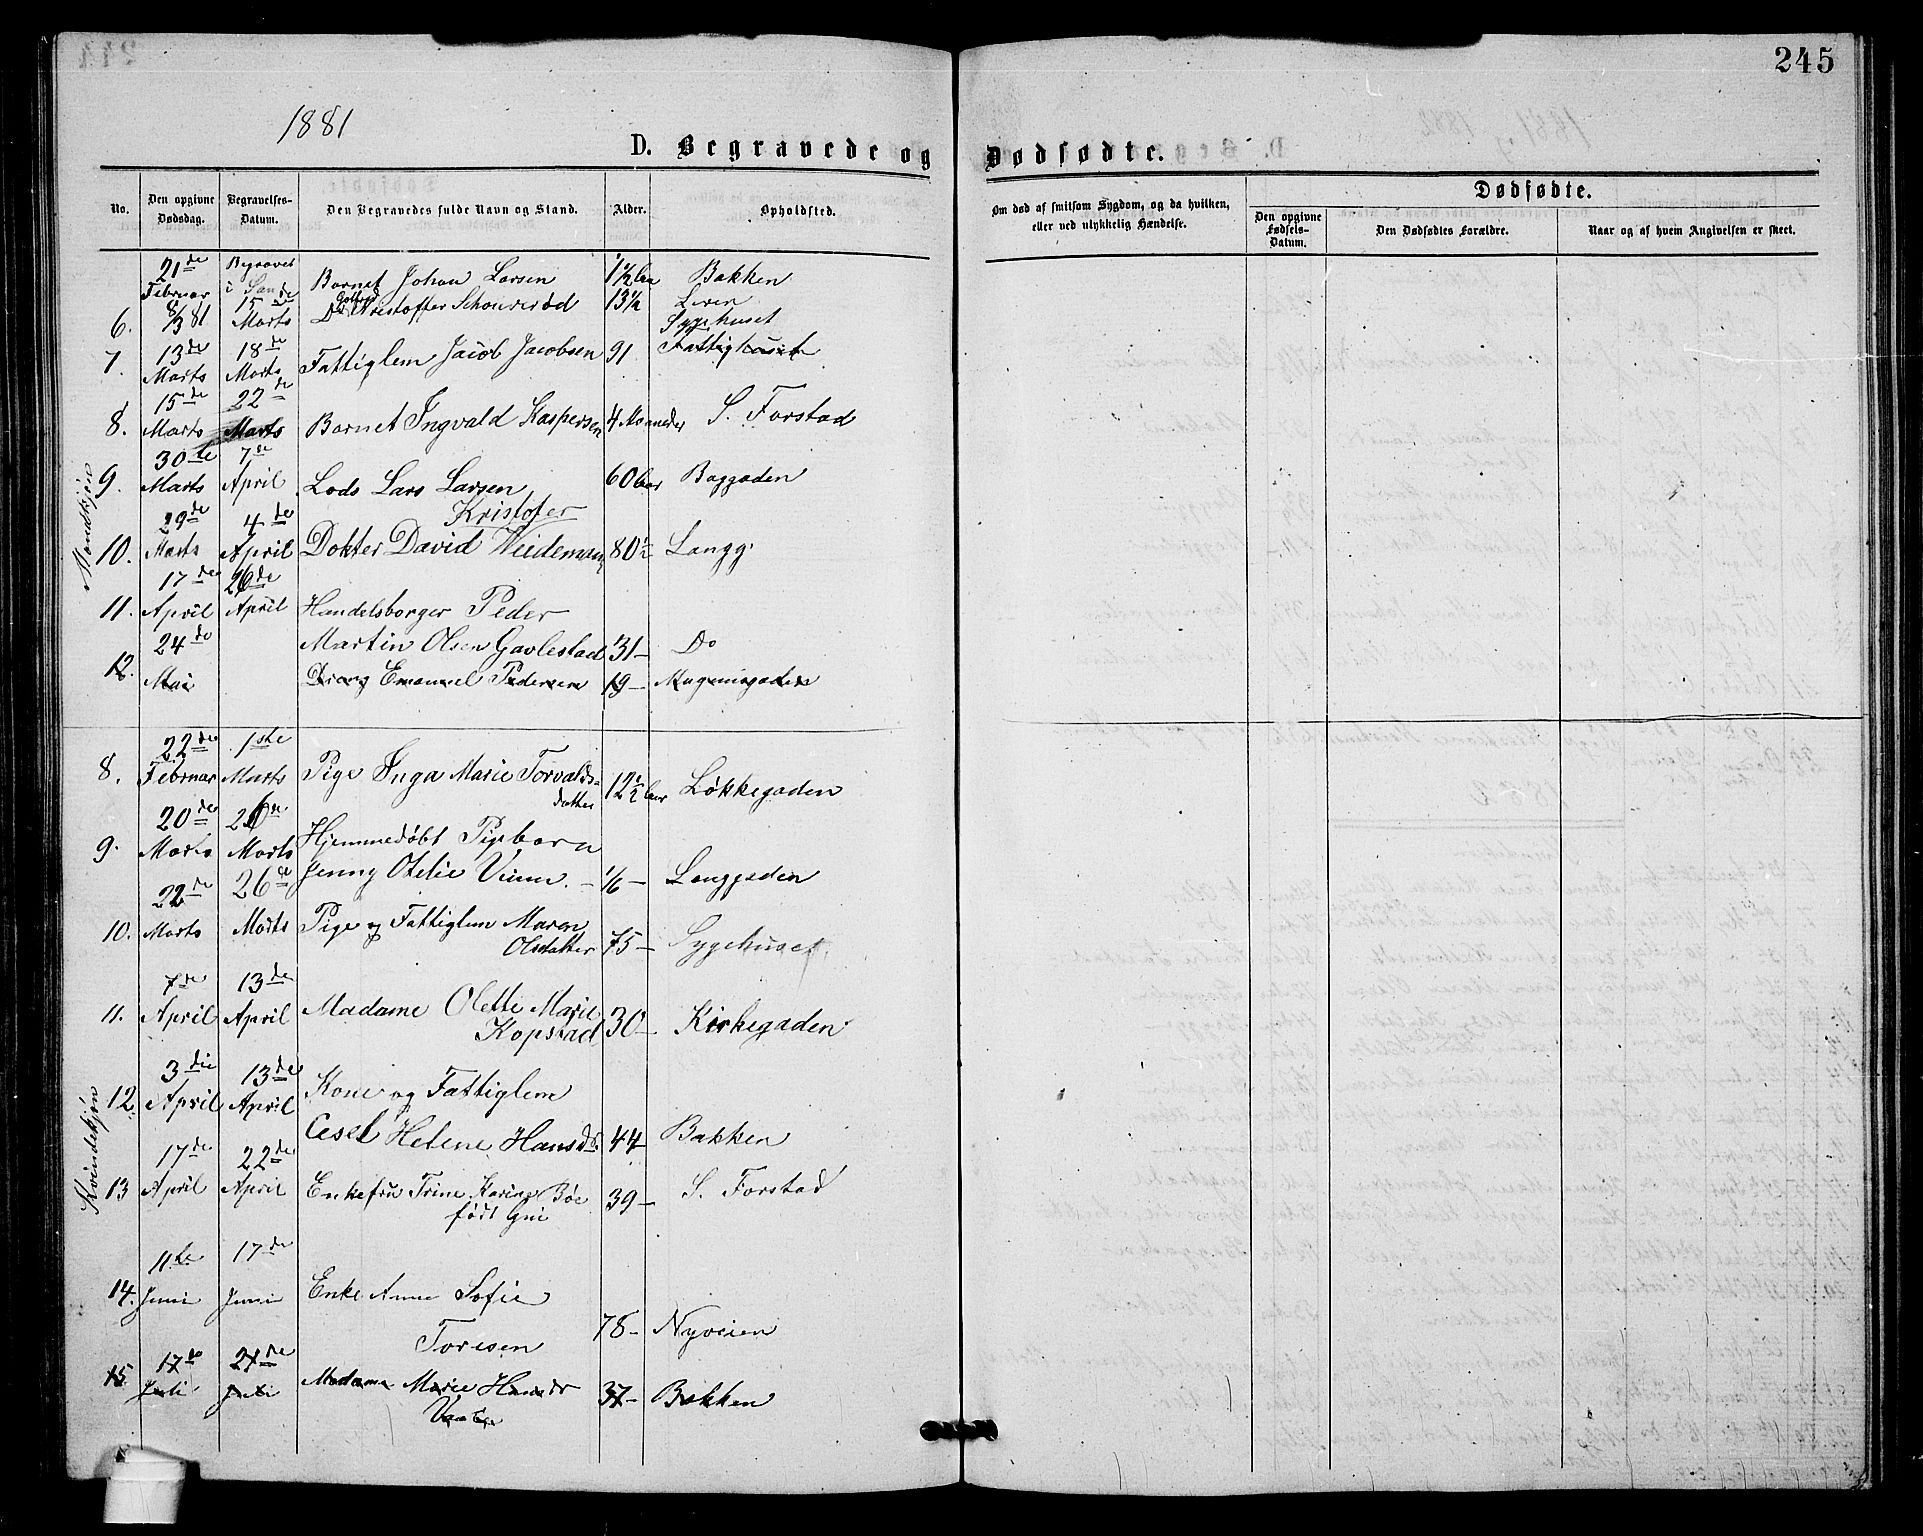 245
1881
D. Begravede og Dødfødte.
No.
Den opgivne Dødsdag.
Begravelses-Datum.
Den Begravedes fulde Navn og Stand.
Alder.
Opholdsted.
Om død af smitsom Sygdom, og da hvilken, eller ved ulykkelig Hændelse.
Dødfødte.
Den opgivne Fødsels-Datum.
Den Dødfødtes Forældre.
Naar og af hvem Angivelsen er skeet.
Mandkjøn
21de Februar Begravet i Sande Barnet Johan Larsen 1½ Bakken
6. 8/3 81 15de Marts Kristoffer 13½
Sygehuset
7. 13de Marts 18de Marts Fattiglem Jacob Jacobsen 91 Fattighuset
8. 15de Marts 22de Marts Barnet Ingvald Kaspersen 4 Maaneder S. Forstad
9. 30te Marts 7de April Lods Lars Larsen 60 Aar Baggaden
Kristofer
10. 29de Marts 4de April Dokter David Weidemann 80½ Langg.
11. 17de April 26de April Handelsborger Peder
Martin Olsen Gavlestad 31 – Do
12. 24de Mai Dreng Emanuel Pedersen 19 –
Kvindekjøn
8. 22de Februar 1ste Marts Pige Inga Marie Torvalds-
datter 12½ Aar Løkkegaden
9. 20de Marts 26de Marts Hjemmedøbt Pigebarn
Jenny Otelie – 1/6 – Langgaden
10. 22de Marts 26de Marts Pige og Fattiglem Maren
Olsdatter 75 – Sygehuset
11. 7de April 13de April Madame Olette Marie
Kopstad 30 – Kirkegaden
12. 3die April 13de April Kone og Fattiglem
Helene Hansd. 44 Bakken
13 17de April 22de April Enkefru Trine Karine Bøe
født 39 – S. Forstad
14. 11te Juni 17de Juni Enke Anne Sofie
Toresen 78 – Nyveien
15 17de Juli 21de Juli Madame Marie 37 – Bakken